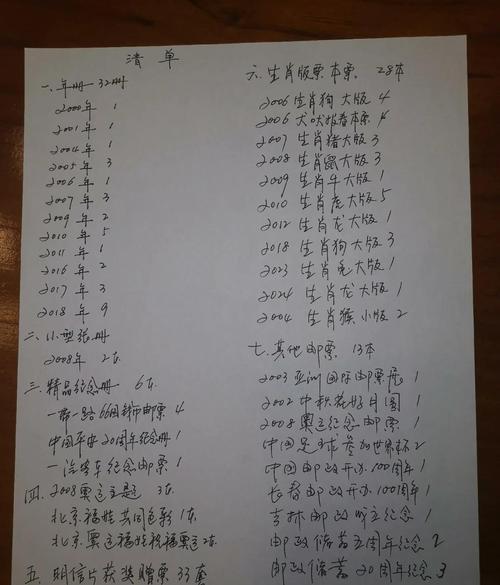 清单
一. 年册 32册
2000年 1
2001年 1
2004年 1
2005年 3
2006年 1
2007年 3
2009年 2
2010年 5
2011年 1
2016年 2
2017年 3
2018年 9
二. 小型张册
2008年 2本
三. 精品纪念册 6本
一带一路66国邮票 4
中国平安20周年纪念册 1
一汽客车纪念邮票 1
四. 2008奥运主题 3本
北京福娃共同色彩 1本
北京奥运福娃祝福奥运 2本
五. 明信片获奖赠票 33套
六. 生肖版票本票 28本
2006生肖狗大版 4
2006犬吠报春本票 4
2007生肖猪大版 3
2008生肖鼠大版 3
2009生肖牛大版 1
2010生肖虎大版 5
2012生肖龙大版 1
2018生肖狗大版 3
2023生肖兔大版 1
2024生肖龙大版 1
2004生肖猴小版 2
七. 其他邮票 13本
2003亚洲国际邮票展 1
2002中秋花好月圆 1
2008奥运纪念 1
中国足球参加世界杯 2
中国邮政开办100周年 1
长春邮政开办100周年 1
吉林邮政成立纪念 1
邮政储蓄五周年纪念 2
邮政储蓄20周年纪念 3